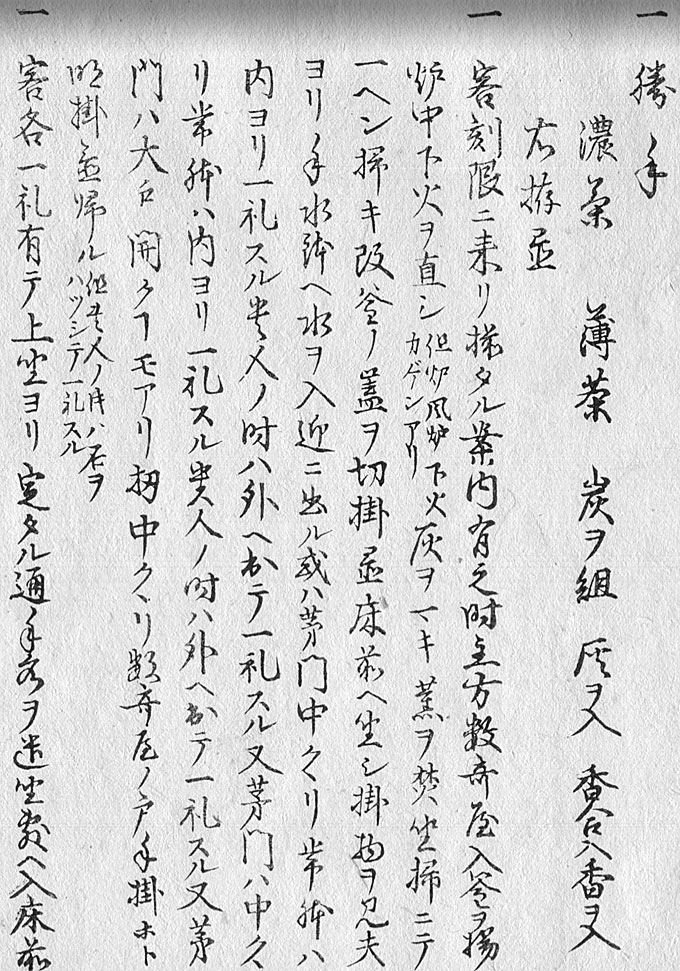 一 勝手
濃茶 薄茶 炭ヲ組 灰ヲ入 香合ヘ香ヲ入
右拵置
一 客刻限ニ来リ様タル案内有之時主方数奇屋入釜ヲ揚
炉中下火ヲ直シ 但炉風炉下火カゲンアリ 灰ヲマキ薫ヲ焚坐掃ニテ
一ヘン掃キ改釜ノ蓋ヲ切掛置床前ヘ坐シ掛物ヲ見夫
ヨリ手水鉢ヘ水ヲ入迎ニ出ル或ハ茅門中クヽリ常躰ハ
内ヨリ一礼スル貴人ノ時ハ外ヘ出テ一礼スル又茅門ハ中クヽ
リ常躰ハ内ヨリ一礼スル貴人ノ時ハ外ヘ出テ一礼スル又茅
門ハ大戸開クヿモアリ扨中クヽリ数奇屋ノ戸手掛ホト
明掛置帰ル 但貴人ノ時ハ石ヲハツシテ一礼スル
一 客各一礼有テ上坐ヨリ定タル通手水ヲ遣坐敷ヘ入床前